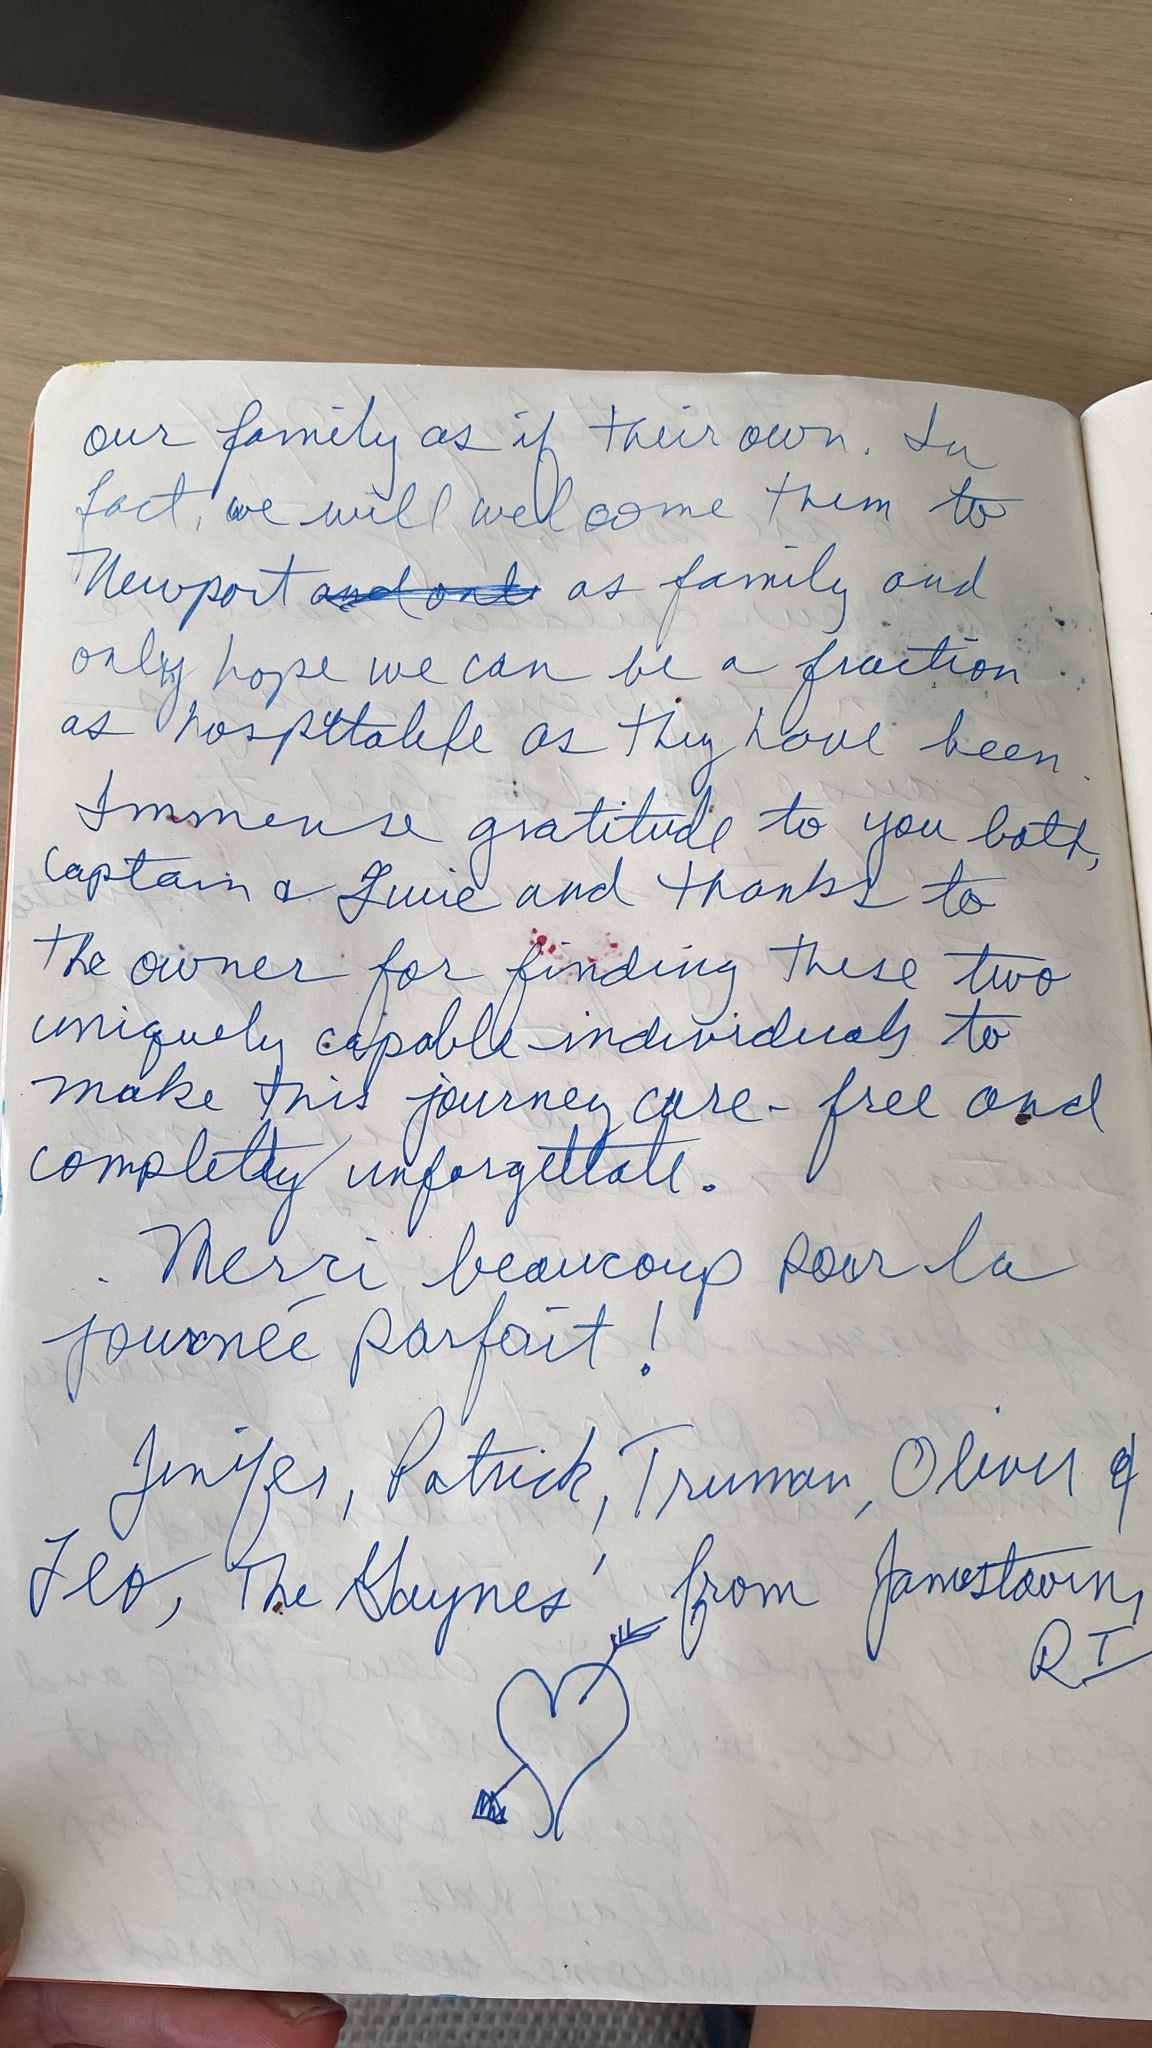 our family as if their own. In
fact, we will welcome them to
Newport as family and
only hope we can be a fraction
as hospitable as they have been.
Immense gratitude to you both,
Captain & Lucie and thanks to
the owner for finding these two
uniquely capable individuals to
make this journey care-free and
completely unforgettable.
Merci beaucoup pour la
journée parfait!
Jenifer, Patrick, Truman, Oliver &
Leo, The Haynes' from Jamestown,
RI